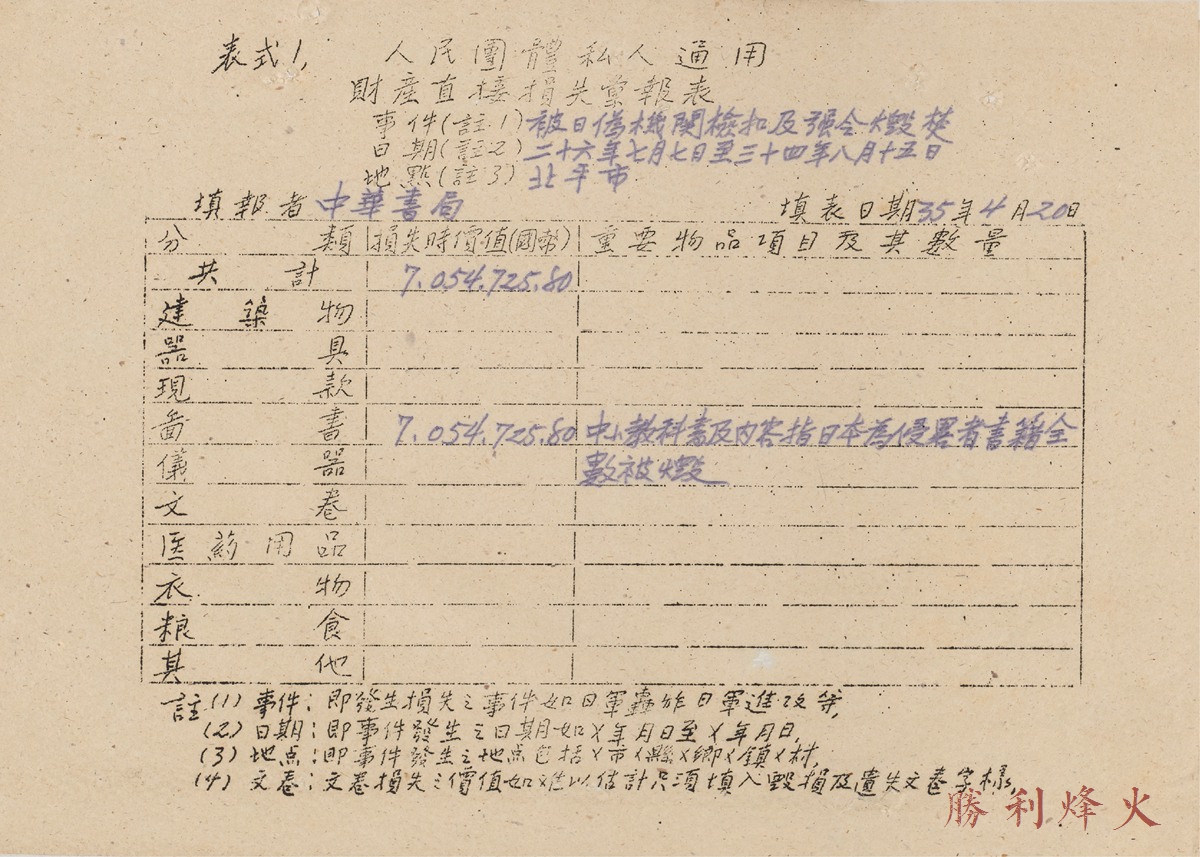 表式1, 人民團體私人通用
財產直接損失彙報表
事件(註1)被日偽機関檢扣及强令燬焚
日期(註2)二十六年七月七日至三十四年八月十五日
地點(註3)北平市
填報者中華書局 填表日期35年4月20日
分類 損失時價值(國幣) 重要物品項目及其數量
共計 7.054.725.80
建築物
器具
現款
啚書 7.054.725.80 中小教科書及内容指日本為侵畧者書籍全
儀器 數被燬
文卷
医药用品
衣物
粮食
其他
註(1)事件:即發生損失之事件如日軍轟炸日軍進攻等,
(2)日期:即事件發生之日期如X年月日至X年月日,
(3)地点:即事件發生之地点包括X市X縣X鄉X鎮X村,
(4)文卷:文卷損失之價值如难以估計只須填入毀損及遺失文卷字樣,
勝利烽火